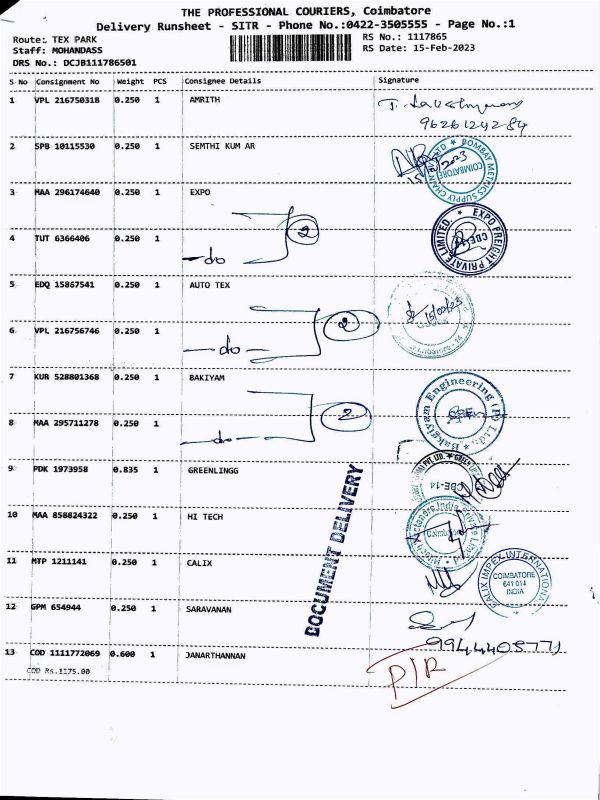 THE PROFESSIONAL COURIERS, Coimbatore
Delivery Runsheet - SITR - Phone No.:0422-3505555 - Page No.:1
Route: TEX PARK RS No.: 1117865
Staff: MOHANDASS RS Date: 15-Feb-2023
DRS No.: DCJB111786501
S No Consignment No Weight PCS Consignee Details Signature
1 VPL 216750318 0.250 1 AMRITH
9626124284
2 SPB 10115530 0.250 1 SEMTHI KUM AR
BOMBAY METRICS SUPPLY CHAIN LTD COIMBATORE
3 MAA 296174640 0.250 1 EXPO
EXPO FREIGHT PRIVATE LIMITED. CBE-14
4 TUT 6366406 0.250 1 -do 2
5 EDQ 15867541 0.250 1 AUTO TEX
15/02/23
6 VPL 216756746 0.250 1 -do- 2
7 KUR 528801368 0.250 1 BAKIYAM
Bakgiyam Engineering (P) Ltd.,
8 MAA 295711278 0.250 1 -do- 2
9 PDK 1973958 0.835 1 GREENLINGG
PVT. LTD. CBE-14
DOCUMENT DELIVERY
10 MAA 858824322 0.250 1 HI TECH
Coimbatore
11 MTP 1211141 0.250 1 CALIX
CALIX IMPEX INTERNATIONAL
COIMBATORE
641 014
INDIA
12 GPM 654944 0.250 1 SARAVANAN
9944405771
13 COD 1111772069 0.600 1 JANARTHANNAN
COD Rs.1175.00
P/R